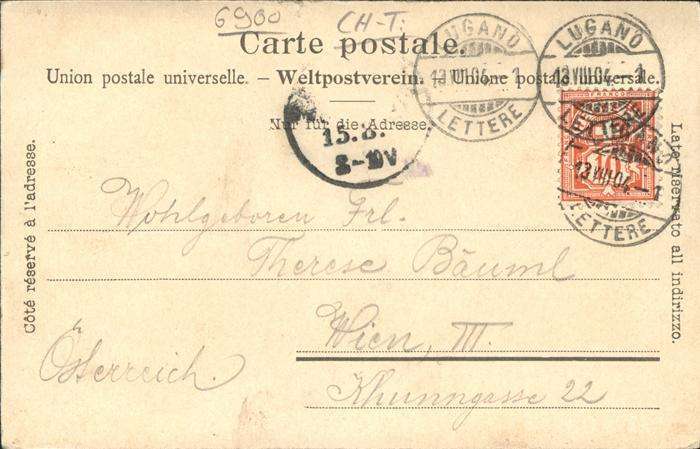 6900
CH-T:
Carte postale.
Union postale universelle. — Weltpostverein. — Unione postale universale.
Nur für die Adresse.
Côté réservé à l'adresse.
Lato riservato all indirizzo.
LUGANO
13.VIII.04.–1
LETTERE
LUGANO
13.VIII.04.–1
LETTERE
FRANCO
10
LUGANO
13.VIII.04.–1
LETTERE
15.8.
8–10V
Wohlgeboren Frl.
Therese Bäuml
Wien, III.
Österreich.
Khunngasse 22